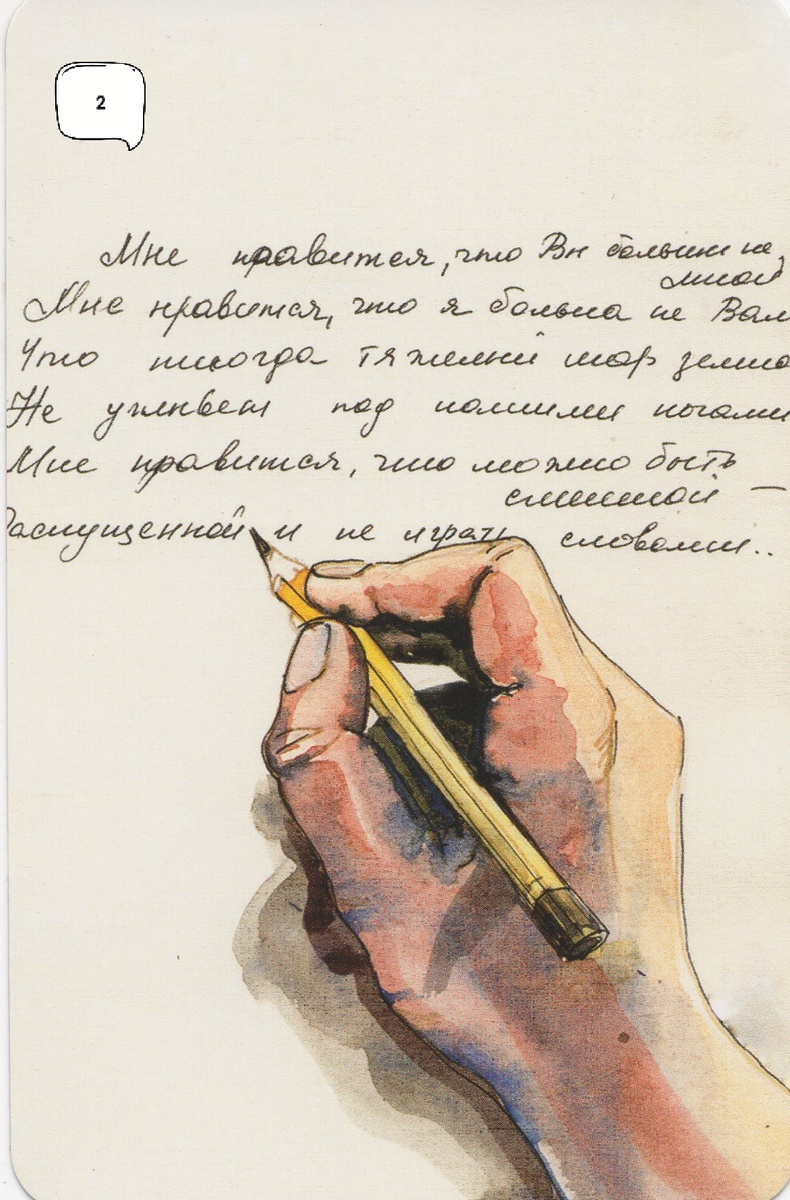 2
Мне нравится, что Вы больны не
мной,
Мне нравится, что я больна не Вам
Что никогда тяжелый шар земно
Не уплывет под нашими ногами
Мне нравится, что можно быть
смешной —
Распущенной и не играть словами..